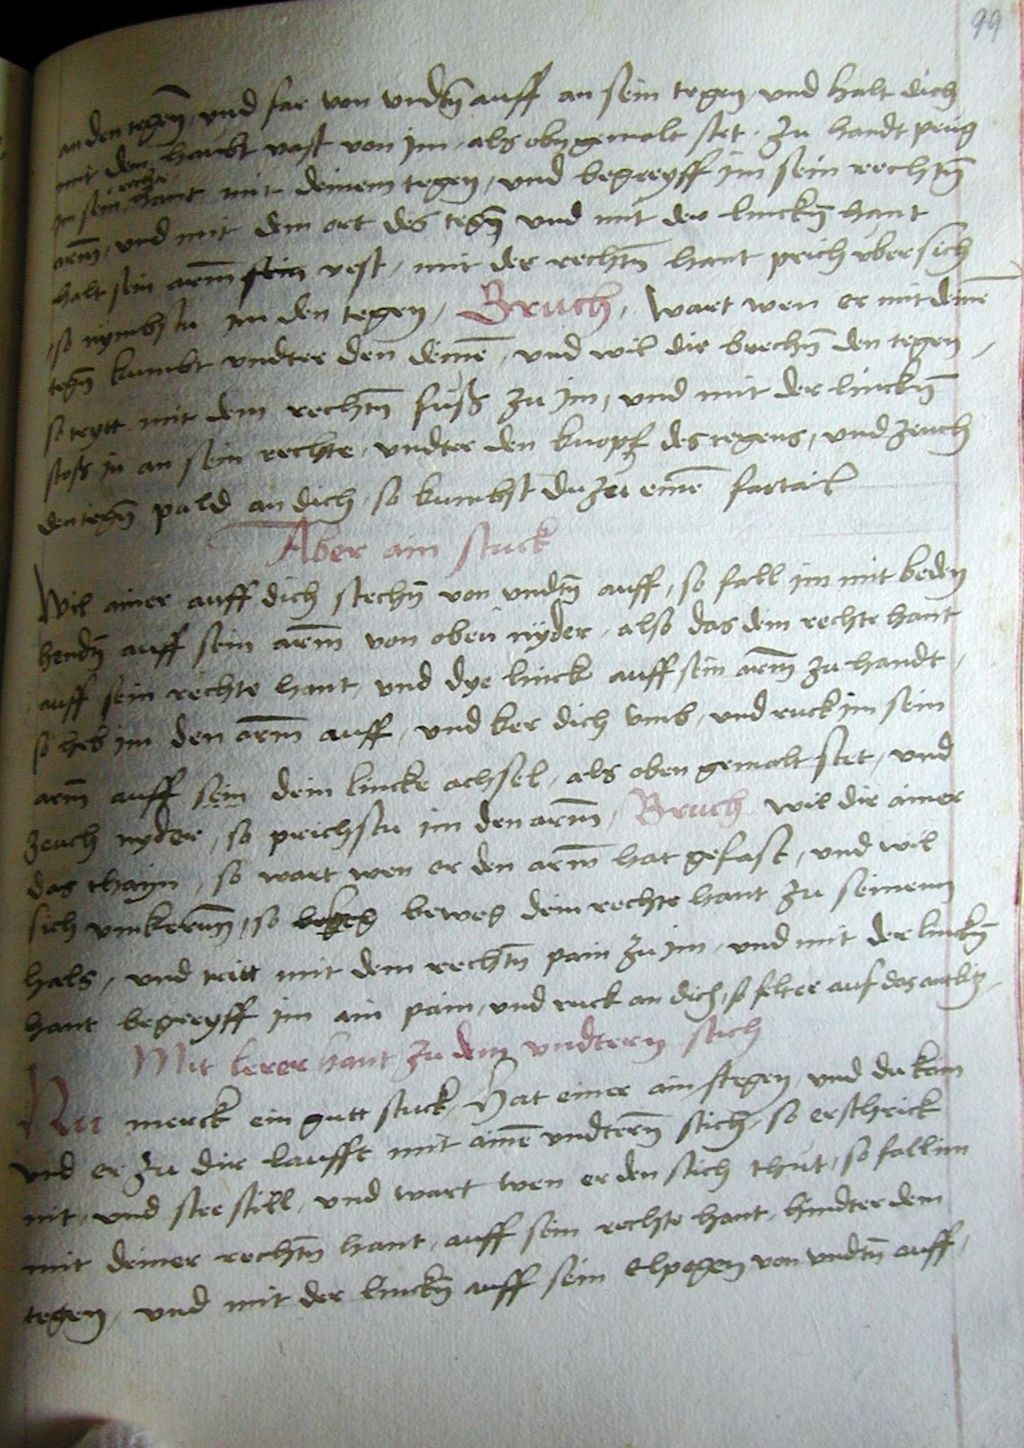 99
an den tegen̄, und far von undtn̄ auff an sein tegen, und halt dich
mit dem haubt vast von im, als obn gemalt stet. Zu handt peüg
im sein rechte hant mit deinem tegen, und begreyff im sein rechtn̄
arm̄, und mit dem ort des tegn̄ und mit der linckn̄ hant
halt sein arm̄ sein vest, mit der rechtn̄ hant prich übersich
so nymbstu im den tegen, Bruch, Wart wen er mit deinē
tegn̄ kumbt undter den deinē, und wil dir brechn̄ den tegen,
so trytt mit dem rechtn̄ fuß zu im, und mit der linckn̄
stoß in an sein rechte, undter den knopf des tegens, und zeuch
den tegn̄ pald an dich, so kumbst du zu einē fartail
Aber ain stuck
Wil ainer auff dich stechn̄ von undtn̄ auff, so fall im mit beden
hendn̄ auff sein arm̄ von oben nyder, also das dein rechte hant
auff sein rechte hant, und dye linck auff sein arm̄ zu handt,
so heb im den arm̄ auff, und ker dich umb, und ruck im sein
arm̄ auff sein dein lincke achsel, als oben gemalt stet, und
zeuch nyder, so prichstu im den arm̄, Bruch wil dir ainer
das thain, so wart wen er den arm̄ hat gefast, und wil
sich umkerun̄, so beweg dein rechte hant zu seinem
hals, und tritt mit dem rechtn̄ pain zu im, und mit der linckn̄
hant begreyff im ain pain, und ruck an dich, so felt er auf das antlitz,
Mit lerer hant zu dem undtern stich
Nu merck ein gutt stuck, Hat einer ain tegen, und du kain
und er zu dir laufft mit ainē undtern̄ stich, so erschrick
nit, und stee still, und wart wen er den stich thut, so fall im
mit deiner rechtn̄ hant, auff sein rechte hant, hindter dem
tegen, und mit der linckn̄ auff sein elpogen von undtn̄ auff,